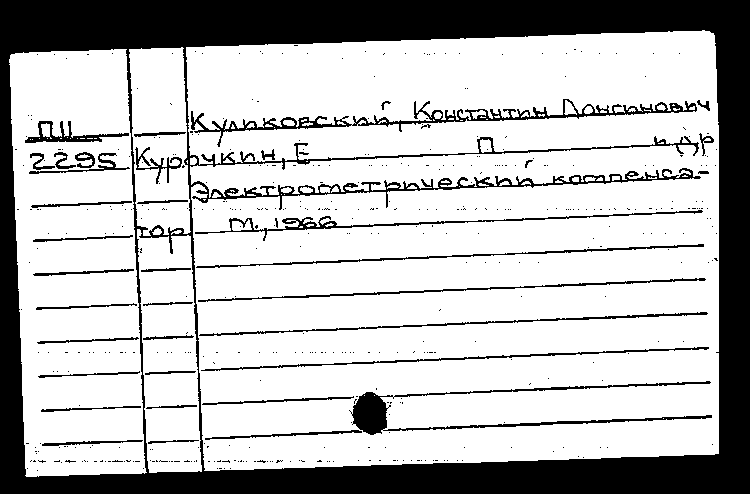 П11 Куликовский, Константин Лонгинович
2295 Курочкин, Е П и др
Электрометрический компенса-
тор М., 1966